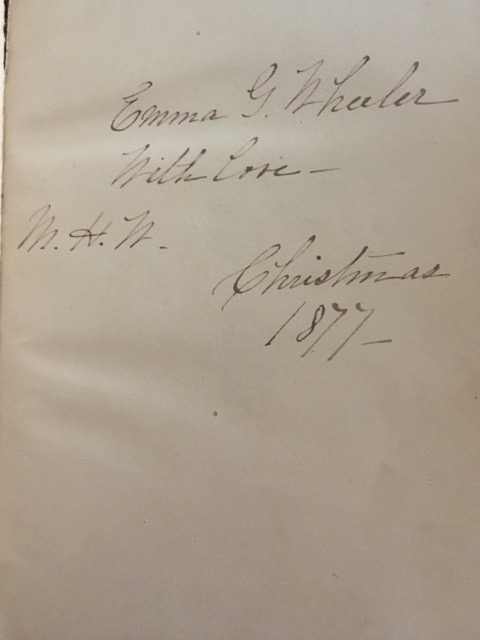 Emma G. Wheeler
With love –
M. H. W.
Christmas
1877 –